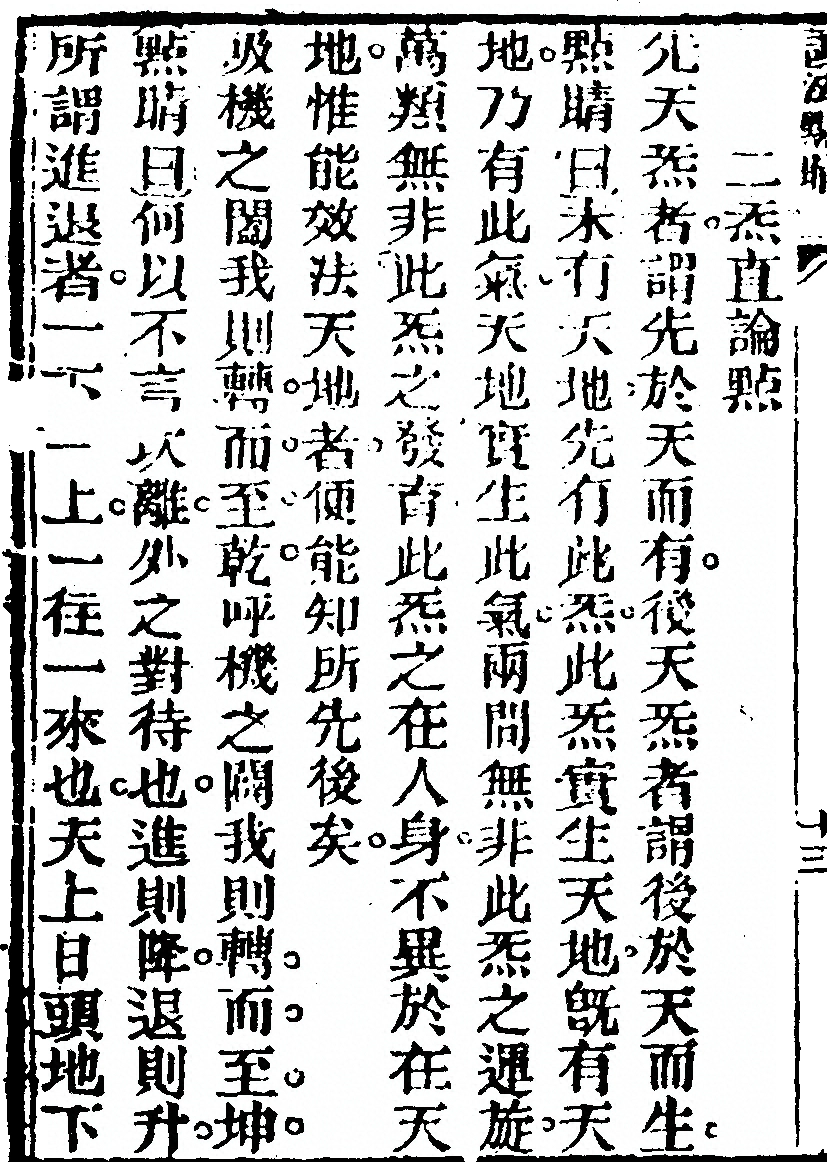 二炁直論點
先天炁者。謂先於天而有。後天炁者謂後於天而生。
點睛曰未有天地先有此炁。此炁實生天地。旣有天
地。乃有此氣。天地實生此氣。兩間無非此炁之運旋。
萬類無非此炁之發育此炁之在人身。不異於在天
地。惟能效法天地者。便能知所先後矣。
吸機之闔我則轉。而。至。乾。呼機之闢我則轉。而。至。坤。
點睛曰何以不言坎離。外之對待也。進則降。退則升。
所謂進退者。一下一上。一往一來也。天上日頭地下
十三